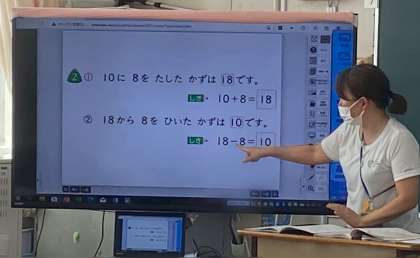 2 ① 10に 8を たした かずは 18です。
しき・ 10+8=18
② 18から 8を ひいた かずは 10です。
しき・ 18-8=10